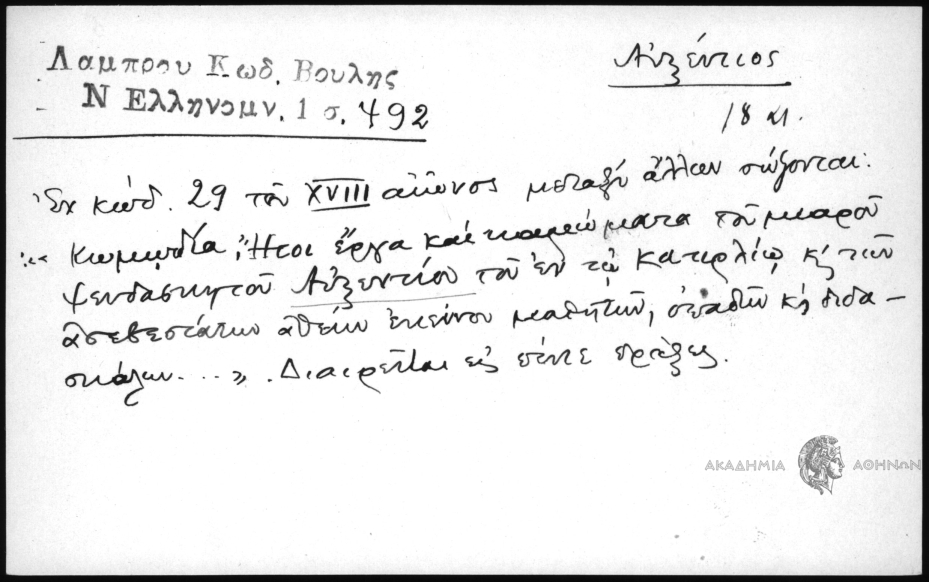 Λαμπρου Κωδ. Βουλης
Ν Ελληνομν. 1 σ. 492
Αὐξέντιος
18 αι.
Ἐν κώδ. 29 τοῦ XVIII αἰῶνος μεταξὺ ἄλλων σώζονται:
« Κωμωδία, Ἤτοι ἔργα καὶ καμώματα τοῦ μιαροῦ
ψευδασκητοῦ Αὐξεντίου τοῦ ἐν τῷ Κατιρλίῳ κ̀ τῶν
ἀσεβεστάτων ἀθέων ἐκείνου μαθητῶν, ὀπαδῶν κ̀ διδα-
σκάλων...». Διαιρεῖται εἰς πέντε πράξεις.
ΑΚΑΔΗΜΙΑ ΑΘΗΝΩΝ